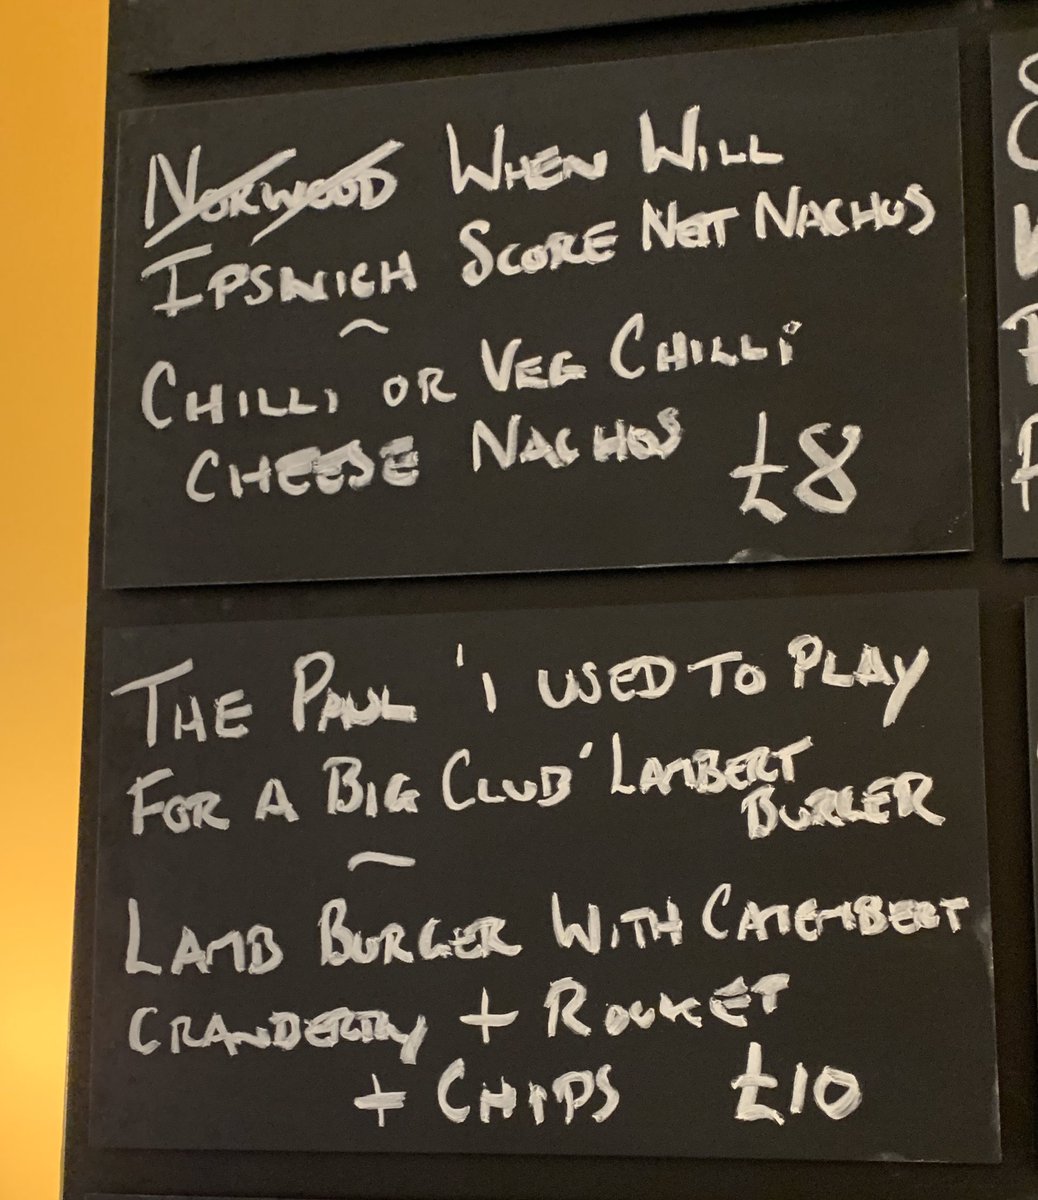 NORWOOD WHEN WILL
IPSWICH SCORE NOT NACHOS
~
CHILLI OR VEG CHILLI
CHEESE NACHOS £8
THE PAUL 'I USED TO PLAY
FOR A BIG CLUB' LAMBERT
BURGER
~
LAMB BURGER WITH CAMEMBERT
CRANBERRY + ROCKET
+ CHIPS £10